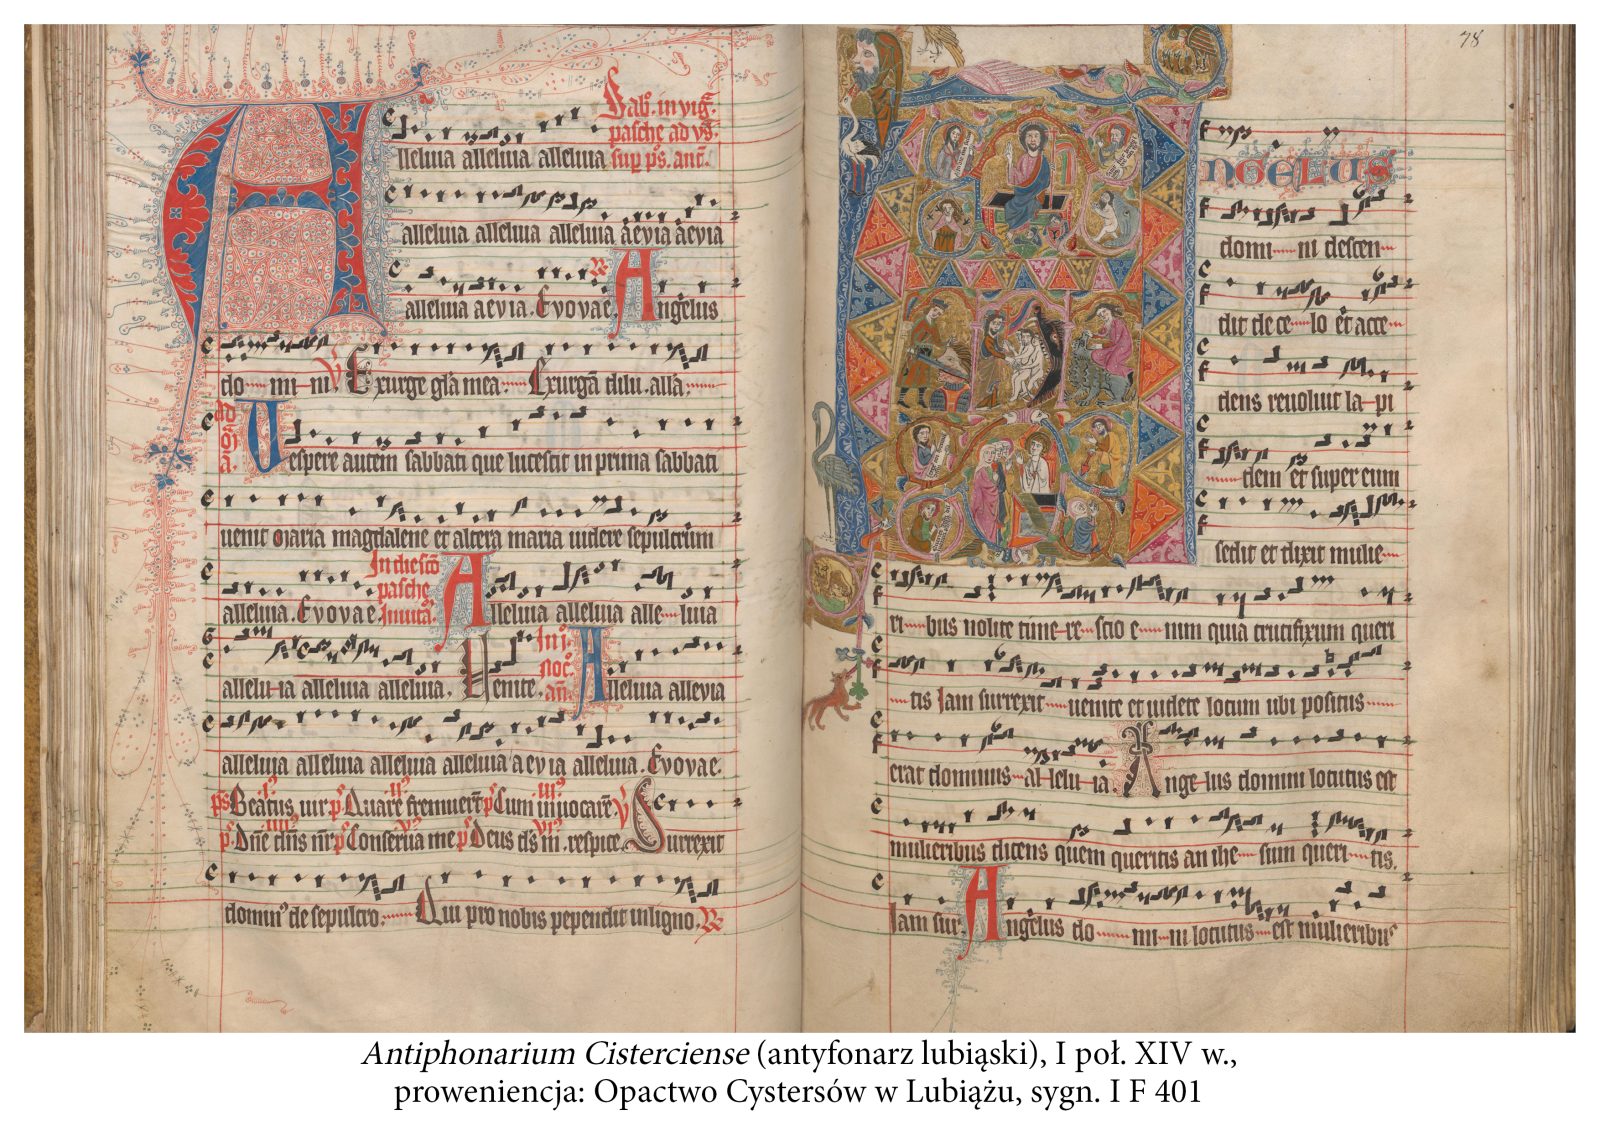 Sabb. in vig.
pasche ad vs.
lleluia alleluia alleluia sup ps. ant.
alleluia alleluia alleluia aevia aevia
alleluia aevia. Evovae. Angelus
do mi ni. Exurge gla mea Exurgā dilu. alla.
ad
Vespere autem sabbati que lucescit in prima sabbati
uenit maria magdalene et altera maria uidere sepulcrum
In die sco
pasche
alleluia. Evovae. Inuitā. Alleluia alleluia alle luia
In j.
noc.
allelu ia alleluia alleluia. Venite. an. Alleluia allevia
alleluia alleluia alleluia alleluia aevia alleluia. Evovae.
ps Beatus uir p Quare fremuert p Cum inuocare
p. Dne dns nr p Conserua me p Deus ds m. respice. Surrexit
domin de sepulcro. Qui pro nobis pependit in ligno.
78
ngelus
domi ni descen
dit de ce lo et acce
dens reuoluit la pi
dem et super eum
sedit et dixit mulie
ri bus nolite time re scio e nim quia crucifixum queri
tis Iam surrexit uenite et uidete locum ubi positus
erat dominus al lelu ia Ange lus domini locutus est
mulieribus dicens quem queritis an ihe sum queri tis.
Iam sur. Angelus do mi ni locutus est mulieribus
Antiphonarium Cisterciense (antyfonarz lubiąski), I poł. XIV w.,
proweniencja: Opactwo Cystersów w Lubiążu, sygn. I F 401